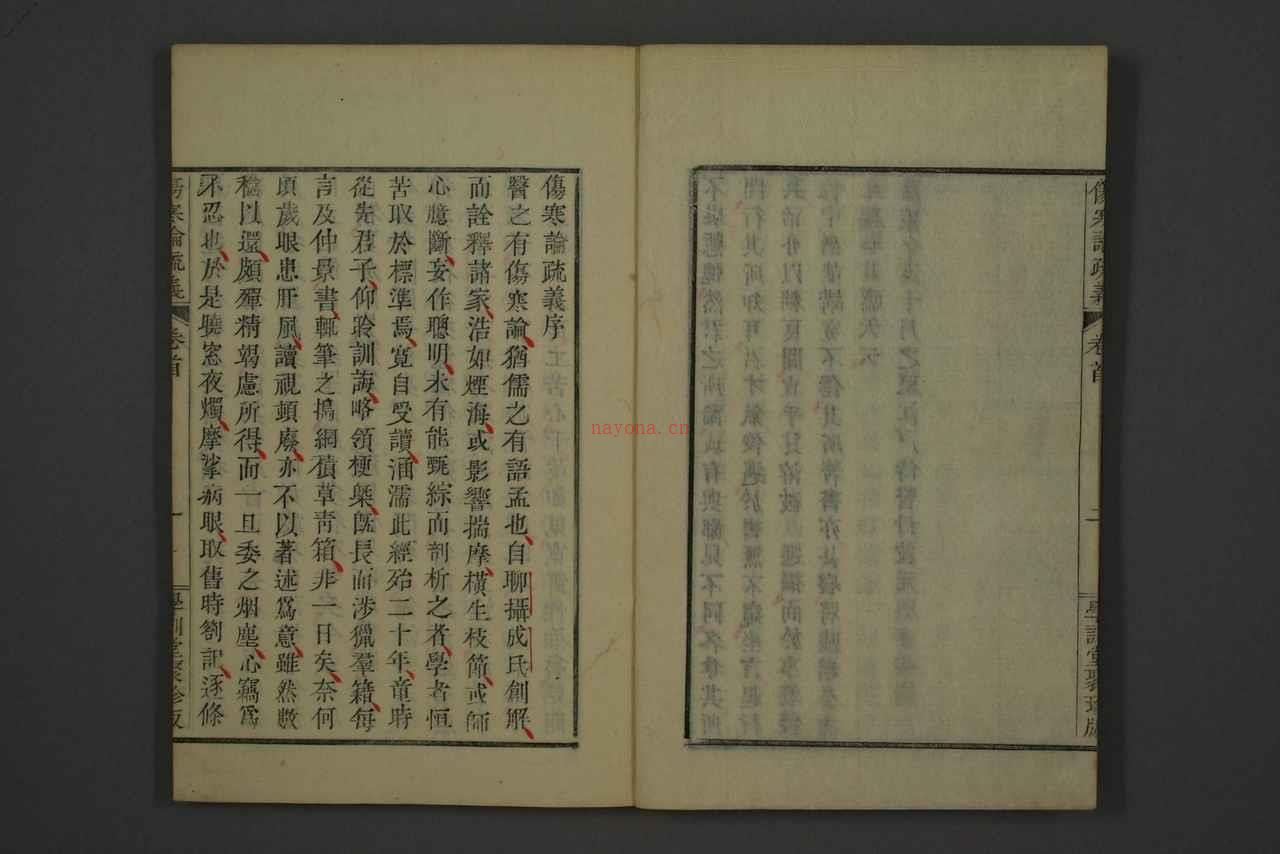 傷寒論疏義
卷首
二
學訓堂聚珍版
傷寒論疏義序
醫之有傷寒論猶儒之有語孟也自聊攝成氏創解
而詮釋諸家浩如煙海或影響揣摩橫生枝節或師
心臆斷妄作聰明未有能甄綜而剖析之者學者恒
苦取於標準焉寬自受讀涵濡此經殆二十年童時
從先君子仰聆訓誨略領梗槩旣長而涉獵羣籍每
言及仲景書輒筆之搗網積草靑箱非一日矣奈何
頃歲眼患肝風讀視頓廢亦不以著述爲意雖然數
稔以還頗殫精竭慮所得而一旦委之烟塵心竊爲
不忍也於是曉窓夜燭摩挲病眼取舊時劄記逐條
傷寒論疏義
卷首
一
學訓堂聚珍版
nayona.cn